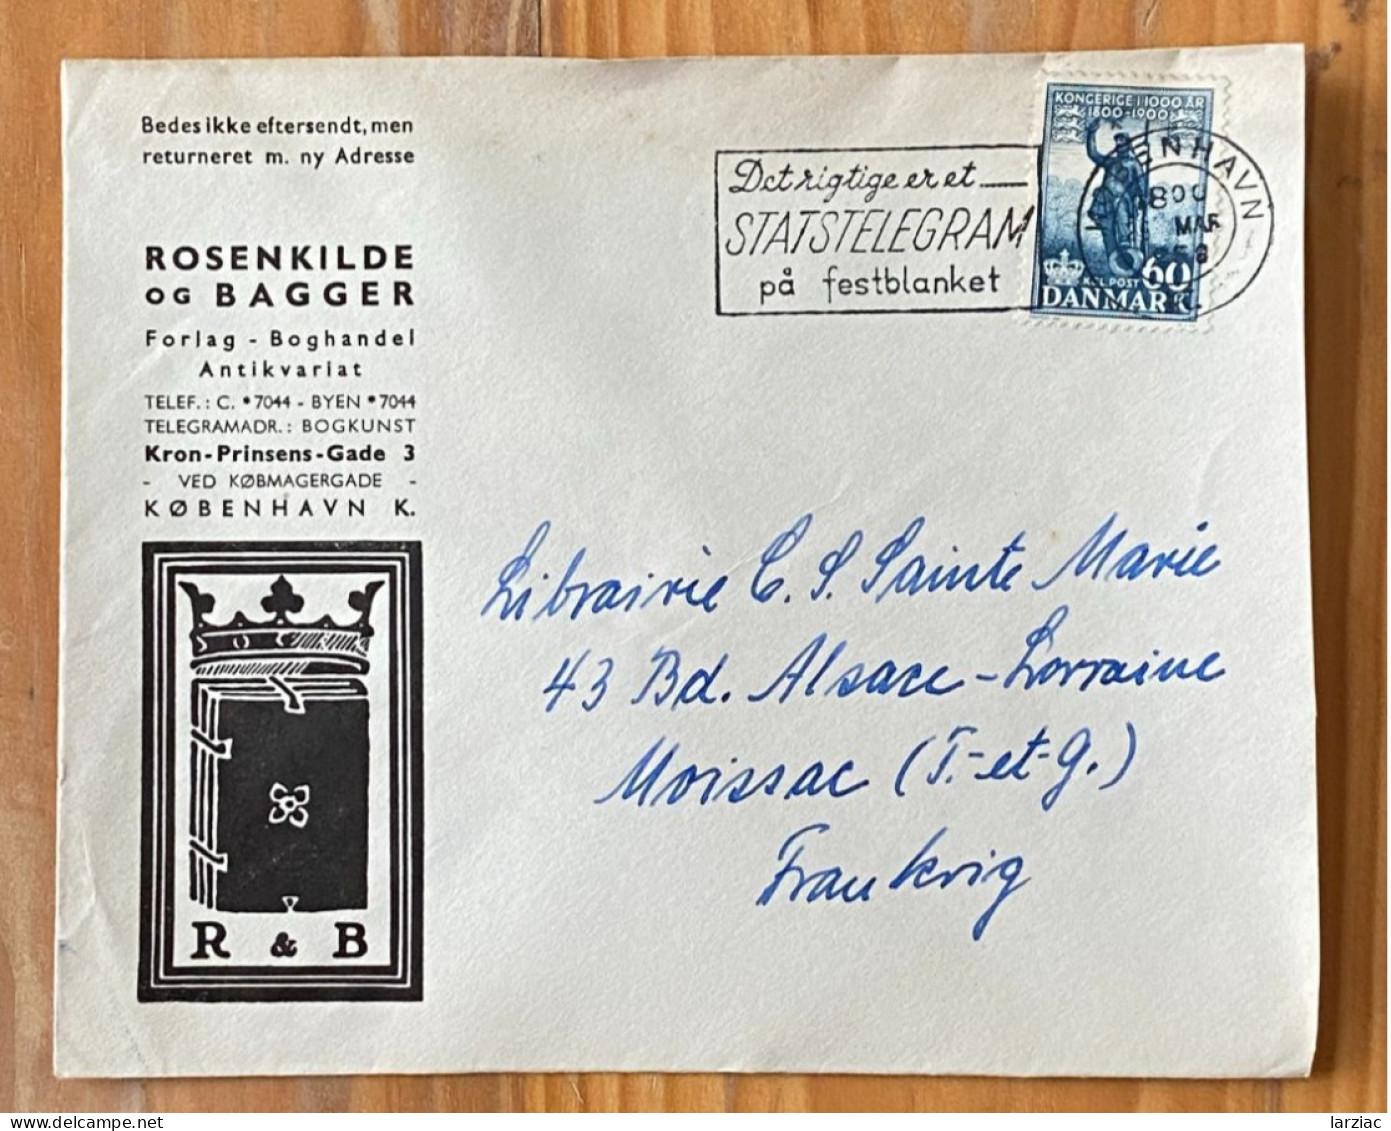 Bedes ikke eftersendt, men
returneret m. ny Adresse
ROSENKILDE
OG BAGGER
Forlag - Boghandel
Antikvariat
TELEF.: C. *7044 - BYEN *7044
TELEGRAMADR.: BOGKUNST
Kron-Prinsens-Gade 3
- VED KØBMAGERGADE -
KØBENHAVN K.
R & B
Det rigtige er et
STATSTELEGRAM
på festblanket
KONGERIGE I 1000 ÅR
1800-1900
KØBENHAVN
MAR
60
DANMARK
Librairie C. S. Sainte Marie
43 Bd. Alsace-Lorraine
Moissac (T.-et-G.)
Frankrig
larziac